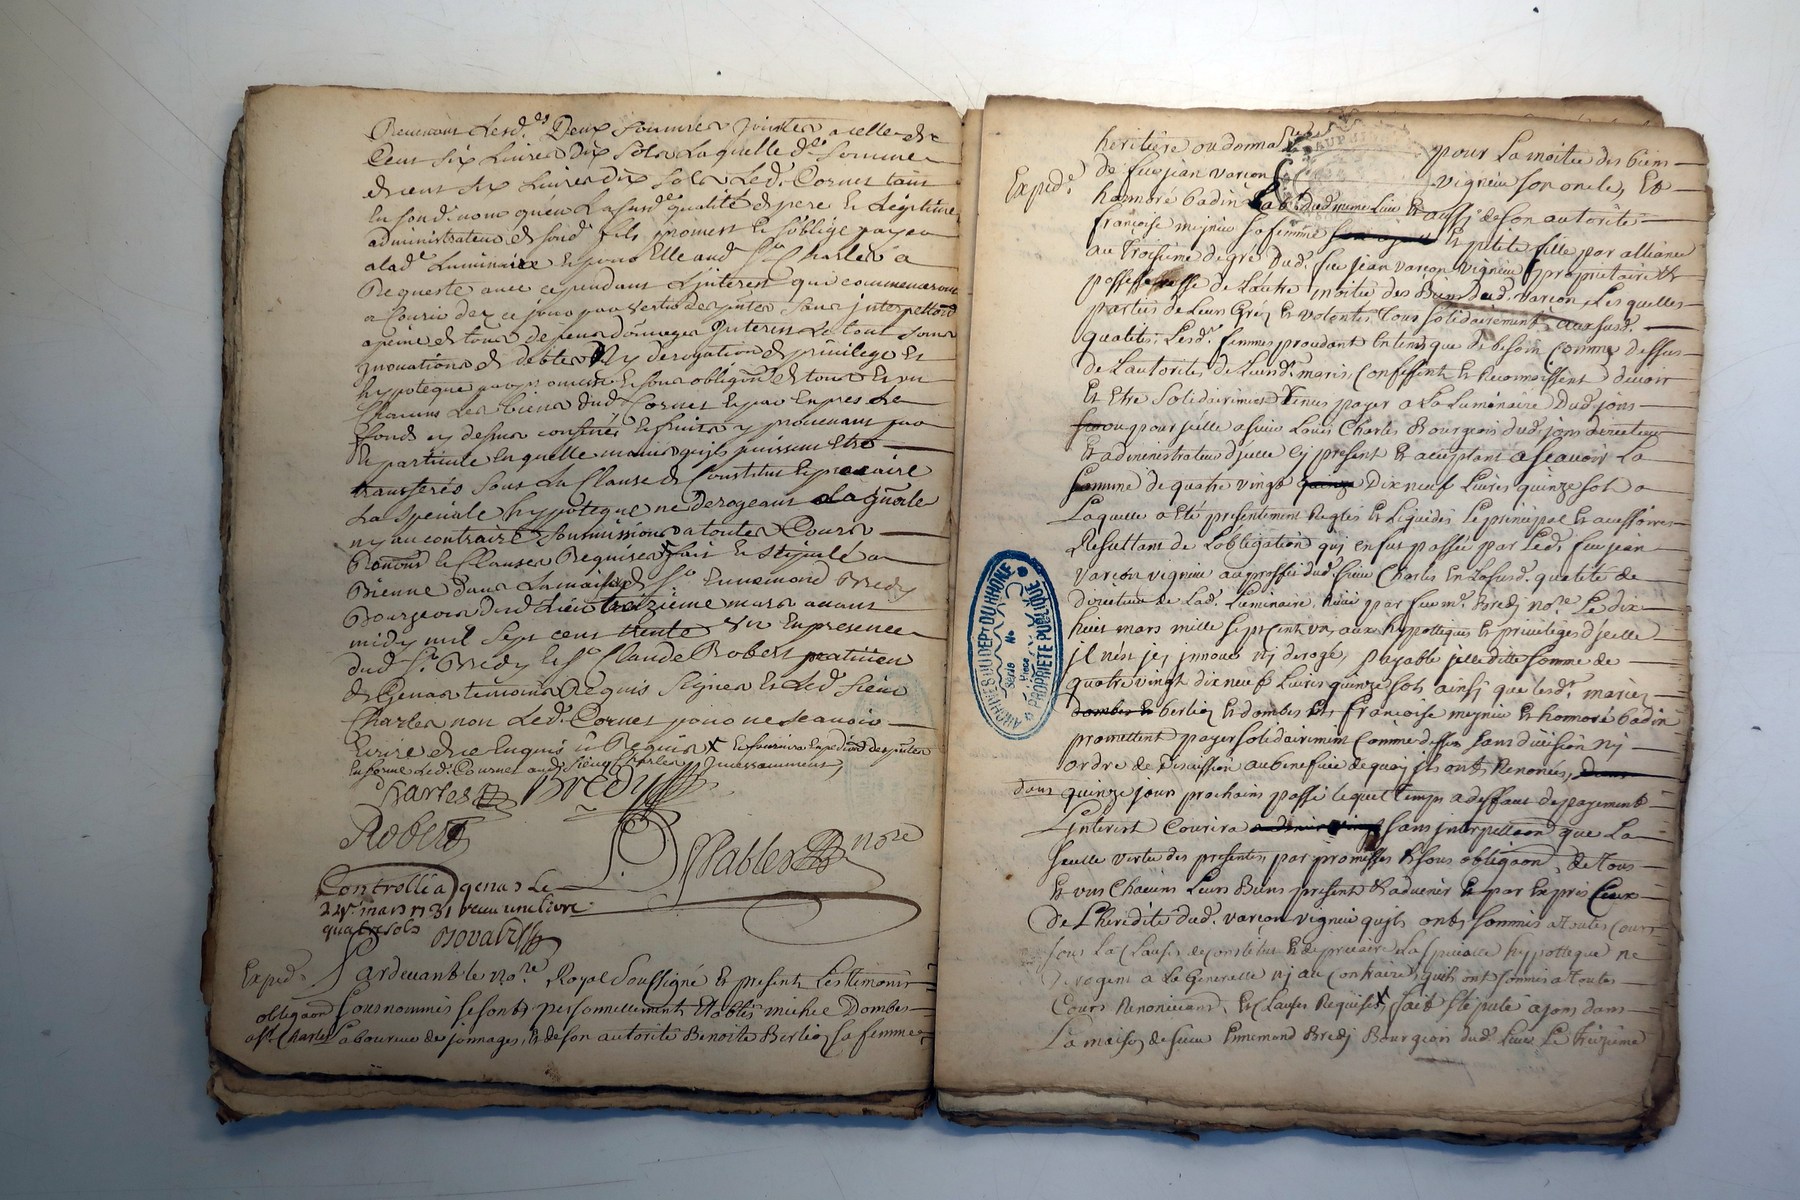 Revenant lesd.es Deux sommes jointes a celle de
Cent six Livres dix sols laquelle d.e somme
de cent six Livres dix sols led. Cornet tant
en sond. nom qu'en la susd.e qualité de pere et Legitime
administrateur de sond. fils promet et s'oblige payer
a lad.e Luminaire et pour Elle aud. S.r Charles a
Requeste avec cependant L'interest qui commencera
a Courir dez ce jour par vertu des pntes sans interpellaōn
a peine de tous depens domages Interests Le tout sans
innovation de debte Ny derogation de privilege et
hypoteque par promesse et sous obligaōn de tous et un
Chacuns Les biens dud. Cornet et par Expres Le
fonds cy dessus confiné et fruits y provenants par
Et particule En quelle main quils puissent Etre
transferés sous La Clause de Constitut et precaire
La speciale hypoteque ne Derogeant a la gñalle
ny au contraire Soumissions a toutes Cours
Renons et Clauses Requises fait et stipulé a
dans la maison de S.r Ennemond Bredy
Bourgeois dud. Lieu treizieme mars avant
midy mil sept cent trente Un En presence
dud. S.r Bredy et S.r Claude Robert praticien
de Genas temoins Requis Signés et Led. Sieur
Charles non Led. Cornet pour ne scavoir
Ecrire de ce Enquis et Requis X et fournira Expedition des pntes
En forme Led. Cournet aud. Sieur Charles Incessamment
Charles Bredy
Robert
Sablere no.re
Controllé a genas Le
24e mars 1731 receu une livre
quatre sols
Expedé
Pardevant le No.re Royal Soussigné et present Les temoins
obligaōn sousnommés se sont personnellement Etablis michel Dombes
a S.r Charles Laboureur de jonnages, et de son autorité Benoite Berlioz sa femme
heritiere ou donna pour La moitié des biens
Expedé
de feu jean varcon vigneux son oncle, et
honnoré badin Lab.r dud. meme Lieu et aussy de son autorité
francoise meynieu sa femme et petite fille par alliance
au Troisieme degré Dud. feu jean varcon vigneux propriétaire et
possesseresse de L'autre moitié des Biens Dud. varcon Lesquelles
parties de Leurs Gréz et volontés Tous solidairement aux susd.
qualités, Lesd. femmes procedant En tems que de besoin comme dessus
de L'autorité de Leursd. maris Confessent et Reconnoissent devoir
Et Etre solidairement Tenus payer a La Luminaire Dud. jons
ou pour jcelle a sieur Louis Charles Bourgeois dud. jons directeur
Et administrateur d'jcelle cy present et acceptant a scavoir La
somme de quatre vingt quinze Dix neuf Livres quinze sols a
Laquelle a Eté presentement Reglés et Liquidés Le principal et accessoires
Resultant de L'obligation qui en fut passée par Led. feu jean
varcon vigneux au proffit dud. sieur Charles En La susd. qualité de
directeur de Lad. Luminaire, Receu par feu m.e Bredy no.re Le dix
huit mars mille sept Cent aux hypotteques et privileges d'jcelle
jl n'est jcy innové ny derogé, payable jcelle ditte somme de
quatre vingt dix neuf Livres quinze sols ainsy que Lesd. mariez
dombes et berlioz et dombes et francoise meyniu et honnoré badin
promettent payer solidairement Comme dessus sans division ny
ordre de Discussion au benefice de quoy ils onts Renoncés, dans
dans quinze jours prochains passé lequel temps a deffaut de payement
L'interest Courira sans interpellaōn que La
seulle vertu des presentes, par promesses et sous obligaōn de tous
Et uns Chacuns Leurs Biens presents et advenir et par Exprés Ceux
de L'heredité dud. varcon vigneux quils onts soumis a toutes Cours
sous La Clause de constitut et de precaire La speciale hypotteque ne
derogent a La Generalle ny au Contraire, quils ont soumis a Toutes
Cours Renonciaons, et Clauses Requises X fait et stipulé a jons dans
La maison de sieur Ennemond Bredy Bourgeois dud. Lieu Le treizieme
ARCHIVES DU DEPT DU RHONE
Serie No
Piece
PROPRIETE PUBLIQUE